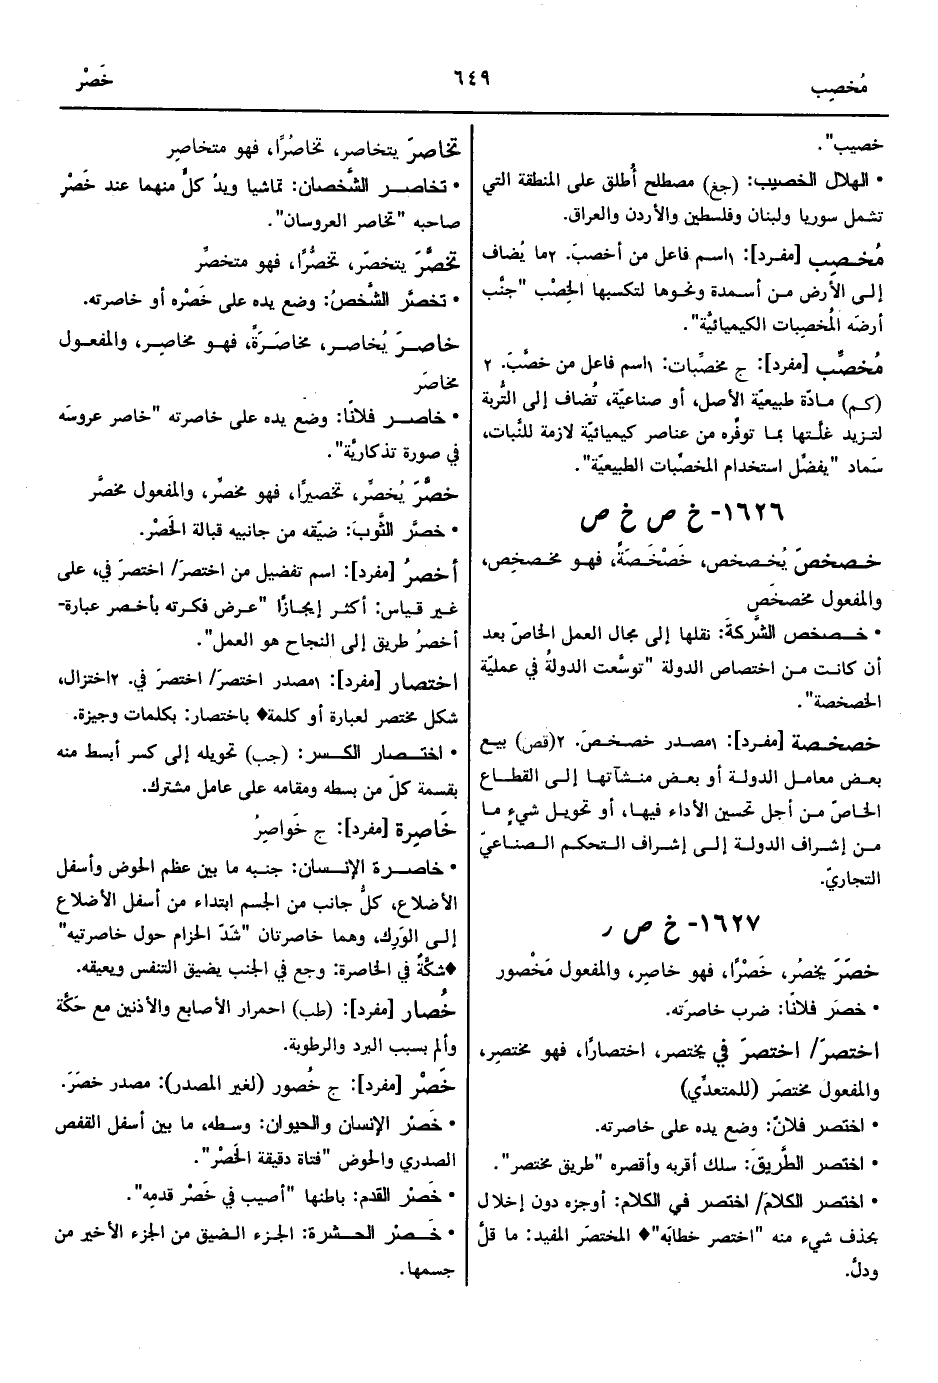 مُخصِب
٦٤٩
خَصْر
خصيب".
• الهلال الخصيب: (جغ) مصطلح أُطلق على المنطقة التي
تشمل سوريا ولبنان وفلسطين والأردن والعراق.
مُخصِب [مفرد]: ١اسم فاعل من أخصبَ. ٢ما يُضاف
إلى الأرض من أسمدة ونحوها لتكسبها الخِصْب "جنْب
أرضَه المُخصِبات الكيميائيَّة".
مُخصِّب [مفرد]: ج مخصِّبات: ١اسم فاعل من خصَّبَ. ٢
(كم) مادّة طبيعيّة الأصل، أو صناعيّة، تُضاف إلى التُّربة
لتزيد غلَّتها بما توفَّره من عناصر كيميائيّة لازمة للنَّبات،
سَماد "يفضَّل استخدام المخصِّبات الطبيعيّة".
١٦٢٦- خ ص خ ص
خصخصَ يُخصخص، خَصْخَصَةً، فهو مخصخِص،
والمفعول مخصخَص
• خصخص الشَّركةَ: نقلها إلى مجال العمل الخاصّ بعد
أن كانت من اختصاص الدولة "توسَّعت الدولةُ في عمليّة
الخصخصة".
خصخصة [مفرد]: ١مصدر خصخصَ. ٢(قص) بيع
بعض معامل الدولة أو بعض منشآتها إلى القطاع
الخاصّ من أجل تحسين الأداء فيها، أو تحويل شيءٍ ما
من إشراف الدولة إلى إشراف التحكم الصناعيّ
التجاريّ.
١٦٢٧- خ ص ر
خصَرَ يخصُر، خَصْرًا، فهو خاصِر، والمفعول مَخْصور
• خصَر فلانًا: ضرب خاصرتَه.
اختصرَ/ اختصرَ في يختصر، اختصارًا، فهو مختصِر،
والمفعول مختصَر (للمتعدِّي)
• اختصر فلانٌ: وضع يده على خاصرته.
• اختصر الطَّريقَ: سلك أقربه وأقصره "طريق مختصر".
• اختصر الكلامَ/ اختصر في الكلام: أوجزه دون إخلال
بحذف شيء منه "اختصر خطابَه"♦ المختصَر المفيد: ما قلَّ
ودلَّ.
تخاصرَ يتخاصر، تخاصُرًا، فهو متخاصِر
• تخاصر الشَّخصان: تماشيا ويدُ كلٍّ منهما عند خَصْرِ
صاحبه "تخاصر العروسان".
تخصَّرَ يتخصَّر، تخصُّرًا، فهو متخصِّر
• تخصَّر الشَّخصُ: وضع يده على خَصْره أو خاصرته.
خاصرَ يُخاصر، مخاصَرَةً، فهو مخاصِر، والمفعول
مخاصَر
• خاصر فلانًا: وضع يده على خاصرته "خاصر عروسَه
في صورة تذكاريَّة".
خصَّرَ يُخصِّر، تخصيرًا، فهو مخصِّر، والمفعول مخصَّر
• خصَّر الثَّوبَ: ضيّقه من جانبيه قبالة الخَصْر.
أخصرُ [مفرد]: اسم تفضيل من اختصرَ/ اختصرَ في، على
غير قياس: أكثر إيجازًا "عرض فكرته بأخصر عبارة-
أخصرُ طريق إلى النجاح هو العمل".
اختصار [مفرد]: ١مصدر اختصرَ/ اختصرَ في. ٢اختزال،
شكل مختصر لعبارة أو كلمة♦ باختصار: بكلمات وجيزة.
• اختصار الكسر: (جب) تحويله إلى كسر أبسط منه
بقسمة كلّ من بسطه ومقامه على عامل مشترك.
خَاصِرة [مفرد]: ج خَواصِرُ
• خاصرة الإنسان: جنبه ما بين عظم الحوض وأسفل
الأضلاع، كلُّ جانب من الجسم ابتداء من أسفل الأضلاع
إلى الوَرِك، وهما خاصرتان "شَدّ الحزام حول خاصرتيه"
♦شكَّةٌ في الخاصرة: وجع في الجنب يضيق التنفس ويعيقه.
خُصار [مفرد]: (طب) احمرار الأصابع والأذنين مع حَكَّة
وألم بسبب البرد والرطوبة.
خَصْر [مفرد]: ج خُصور (لغير المصدر): مصدر خصَرَ.
• خَصْر الإنسان والحيوان: وسطه، ما بين أسفل القفص
الصدري والحوض "فتاة دقيقة الخَصْر".
• خَصْر القدم: باطنها "أصيب في خَصْر قدمِه".
• خَصْر الحشرة: الجزء الضيق من الجزء الأخير من
جسمها.